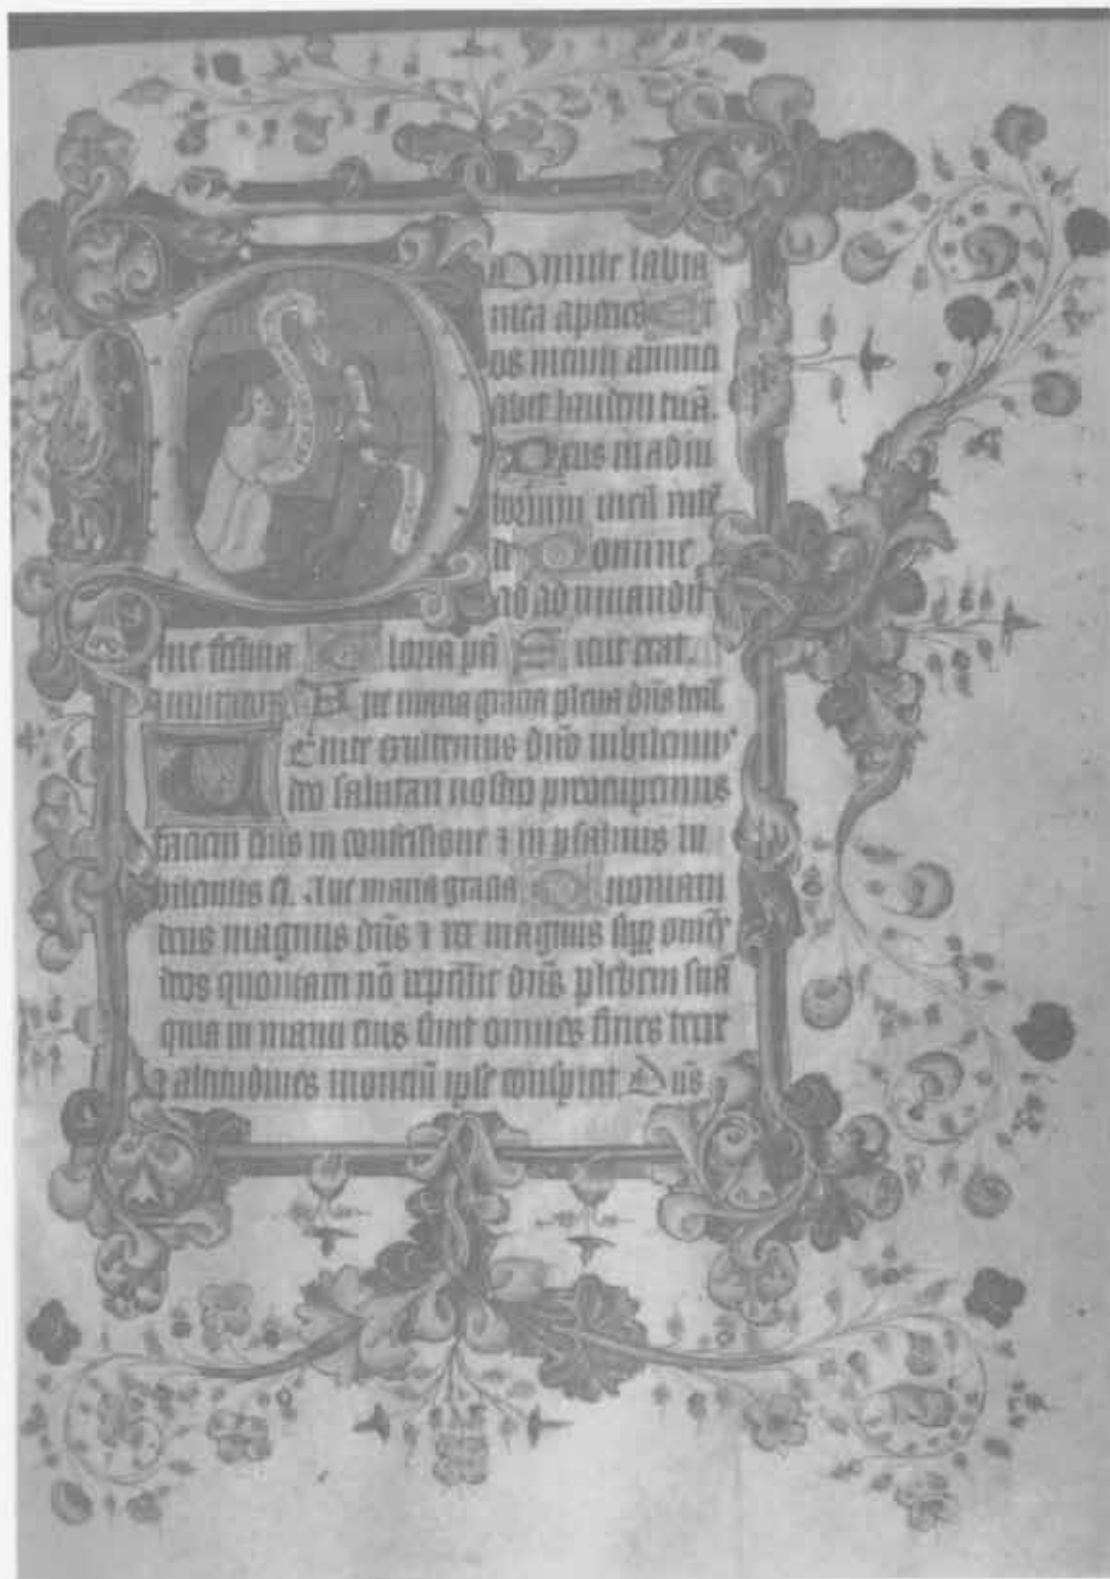 Domine labia
mea aperies Et
os meum annūci
abit laudem tuā.
Deus in adiu
torium meū intē
de Domine
ad adiuuandū
me festina Gloria pri Sicut erat.
Aue maria gracia plena dns tecū.
Uenite exultemus dno iubilemus
deo salutari nostro preocupemus
faciem eius in confessione ⁊ in psalmis iu
bilemus ei. Aue maria gracia Quoniam
deus magnus dns ⁊ rex magnus sup omēs
deos quoniam nō repellet dns plebem suā
quia in manu eius sunt omnes fines terre
⁊ altitudines montiū ipse conspicit Dns